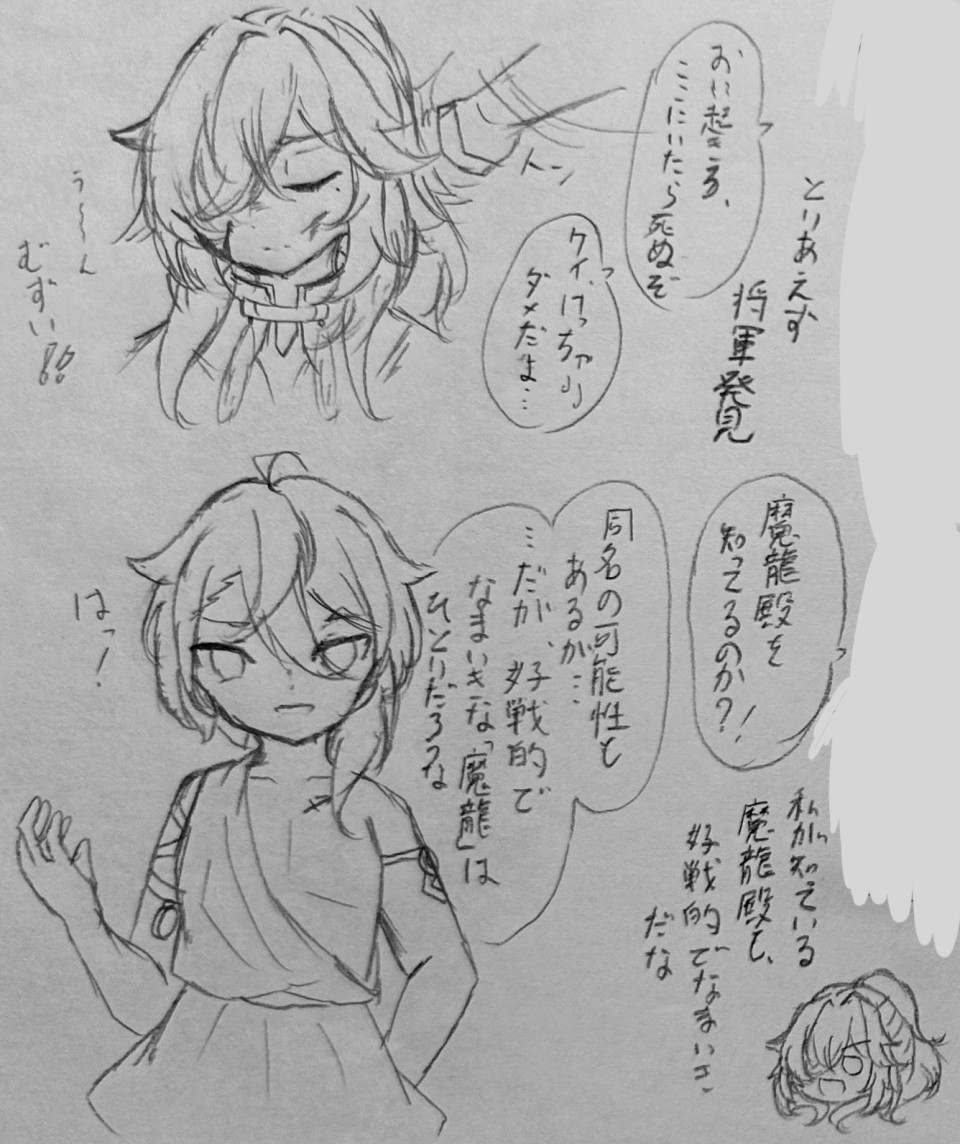 とりあえず
将軍発見
おい起きろ、
ここにいたら死ぬぞ
トーン
ダメだよ…
う〜ん
むずい!!
魔龍殿を
知ってるのか?!
同名の可能性も
あるが…
…だが、好戦的で
なまいきな「魔龍」は
ひとりだろうな
はっ!
私が知っている
魔龍殿も、
好戦的でなまいき
だな